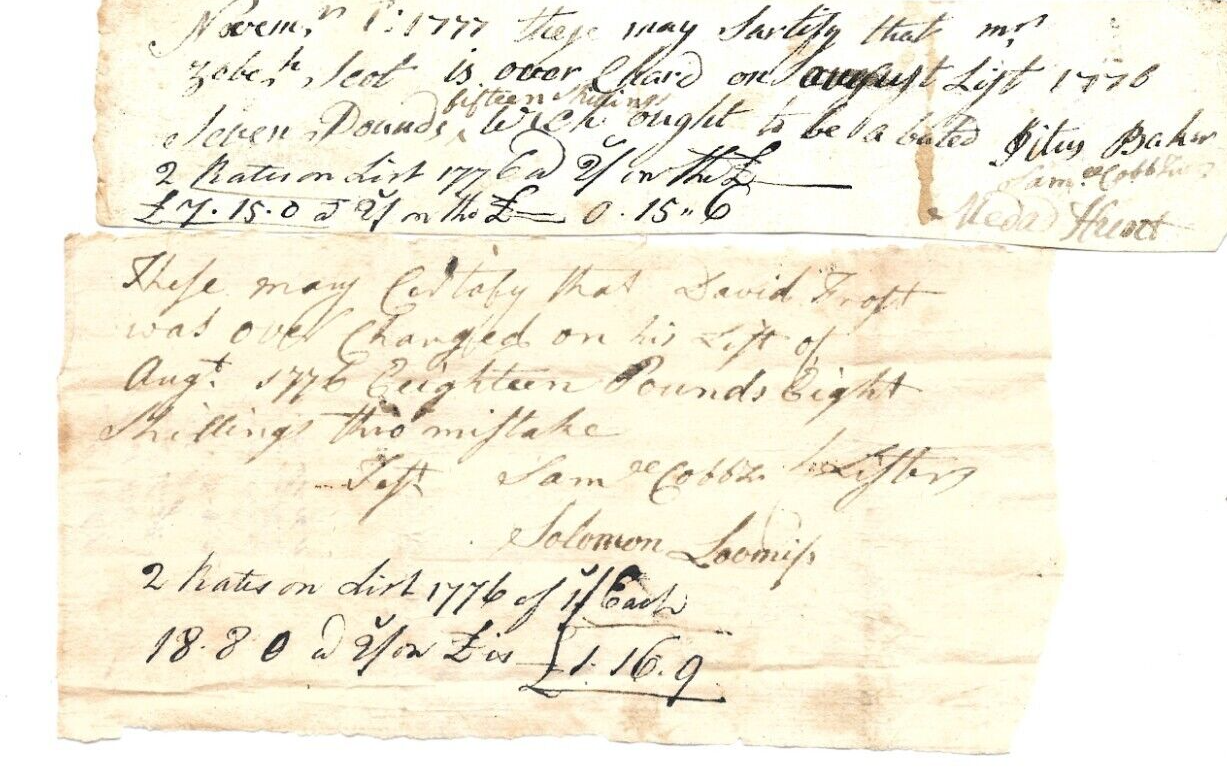 Novemr 1: 1777 these may sartify that mr
Zebeh Scot is over Chard on august List 1776
fifteen shillings
Seven Pounds ^ Wich ought to be a bated Titus Baker
2 Rates on List 1776 @ 2/ on the £
Samll Cobb
£7.15.0 @ 2/ on the £ 0.15"6
Medad
These may Certafy that David Frost
was over Charged on his List of
Augt. 1776 Eeighteen Pounds Eight
Shillings thro mistake
Test Samll Cobb Listers
Solomon Loomis
2 Rates on List 1776 of 1/ Each
18.8 0 @ 2/ on £ is £1.16.9